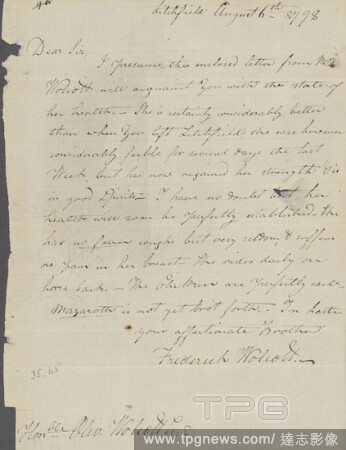 Litchfield August 6th 1798
Dear Sir,
I presume the enclosed letter from Mrs
Wolcott will acquaint You with the state of
her health — She is certainly considerably better
than when You left Litchfield she was however
considerably feeble for several days the last
Week, but has now regained her strength & is
in good Spirits — I have no doubt but her
health will soon be perfectly established. She
has no fever coughs but very seldom & suffers
no pain in her breast. She rides daily on
horse back — The Children are perfectly well
Mazaroth is not yet brot forth. — In haste
your affectionate Brother
Frederick Wolcott
35.45
Honble Oliv. Wolcott
TPG
www.tpgnews.com 達志影像